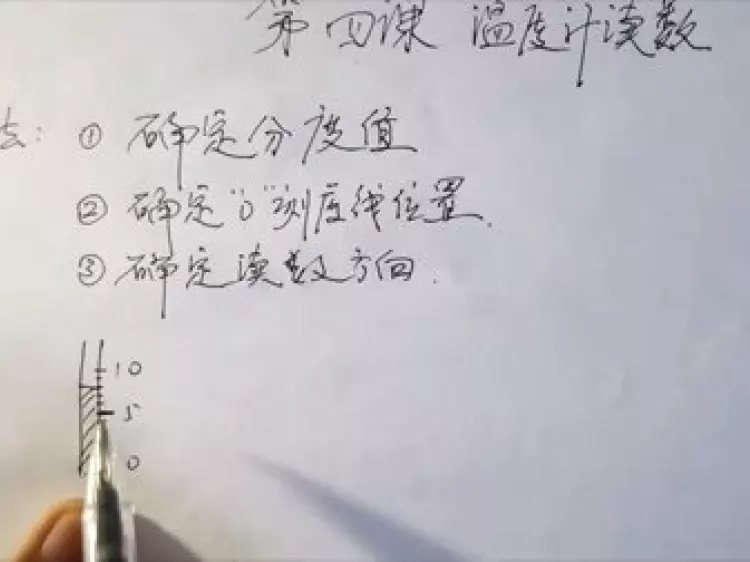 第四课 温度计读数
法: ① 确定分度值
② 确定"0"刻度线位置.
③ 确定读数方向.
10
5
0